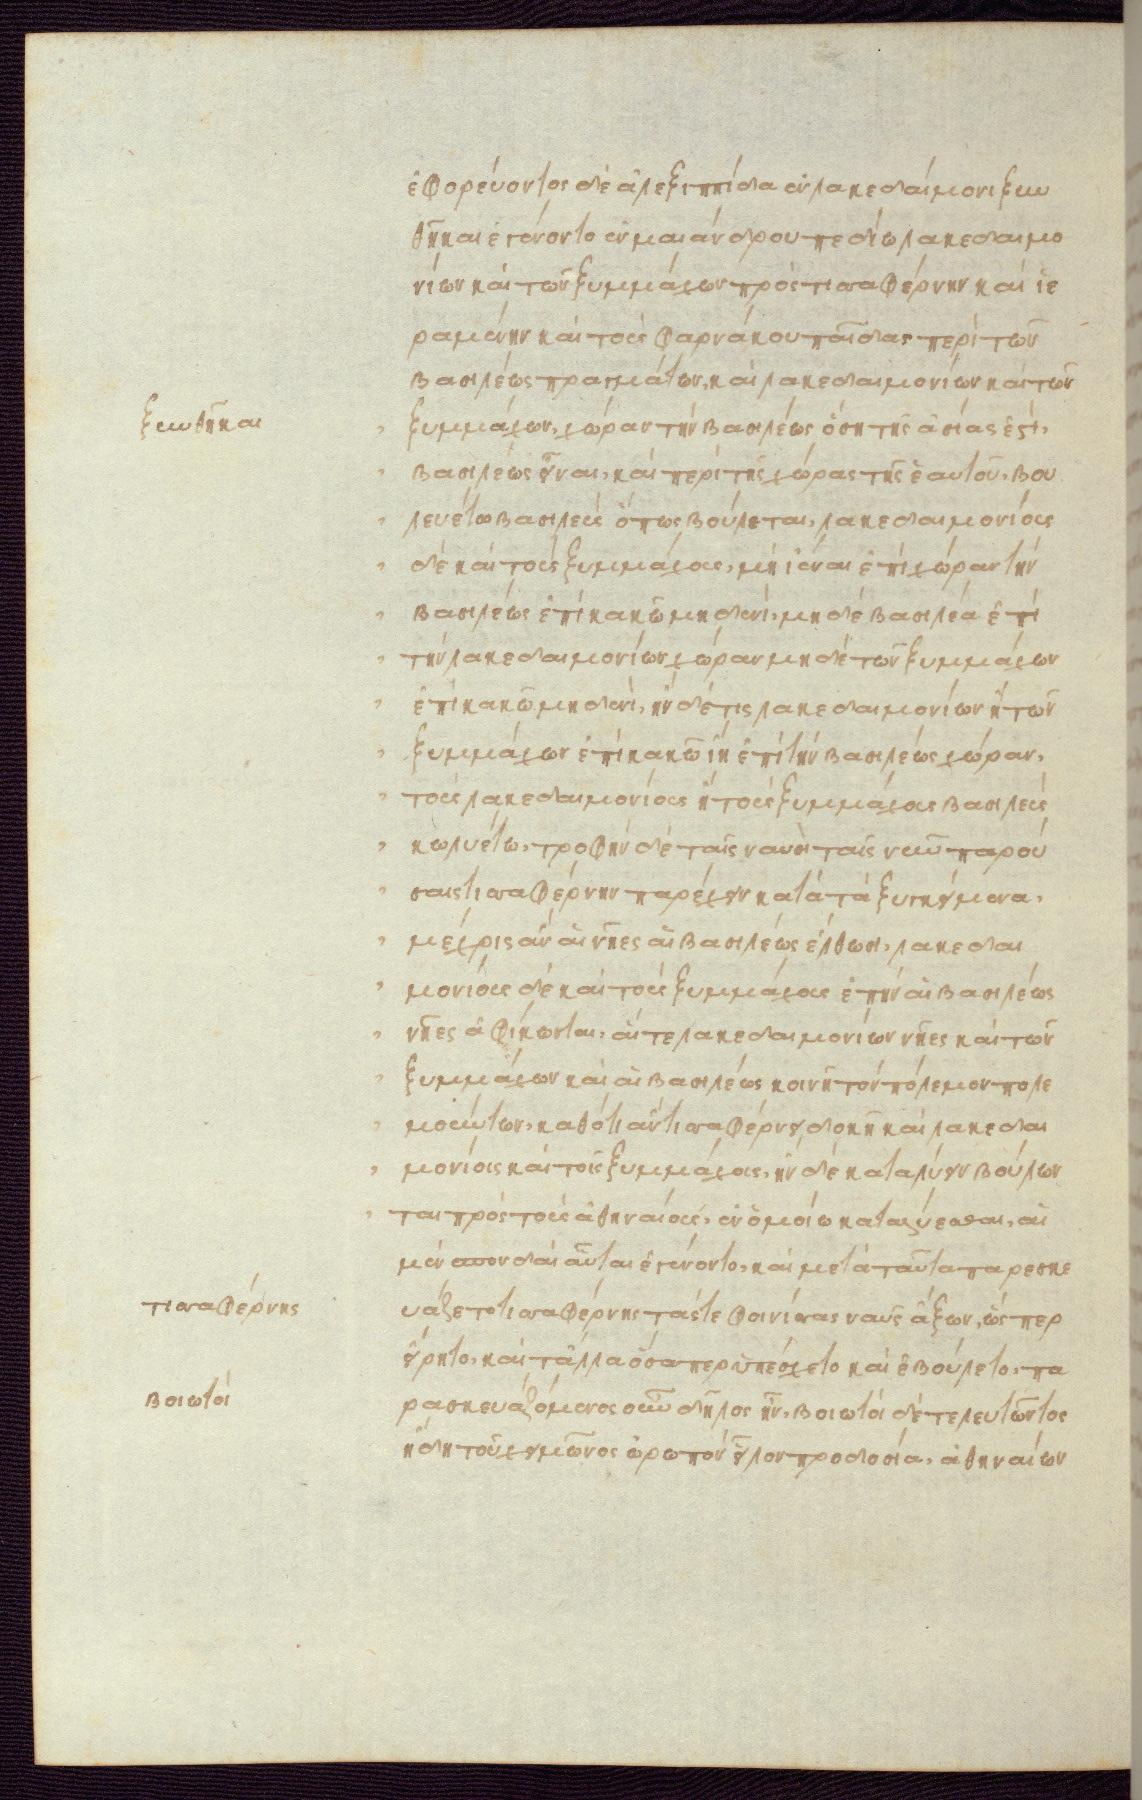 ἐφορεύοντος δὲ ἀλεξιππίδα ἐν λακεδαίμονι ξυν
θῆκαι ἐγένοντο ἐν μαιάνδρου πεδίω λακεδαιμο
νίων καὶ τῶν ξυμμάχων πρὸς τισσαφέρνην καὶ ἱε
ραμένην καὶ τοὺς φαρνάκου παῖδας περὶ τῶν
βασιλέως πραγμάτων, καὶ λακεδαιμονίων καὶ τῶν
ξυνθῆκαι
ξυμμάχων, χώραν τὴν βασιλέως ὅση τῆς ἀσίας ἐστί,
βασιλέως εἶναι, καὶ περὶ τῆς χώρας τῆς ἑαυτοῦ, βου
λευέτω βασιλεὺς ὅπως βούλεται, λακεδαιμονίους
δὲ καὶ τοὺς ξυμμάχους, μὴ ἰέναι ἐπὶ χώραν τὴν
βασιλέως ἐπὶ κακῶ μηδενί, μηδὲ βασιλέα ἐπὶ
τὴν λακεδαιμονίων χώραν μηδὲ τῶν ξυμμάχων
ἐπὶ κακῶ μηδενί, ἢν δέ τις λακεδαιμονίων ἢ τῶν
ξυμμάχων ἐπὶ κακῶ ἴη ἐπὶ τὴν βασιλέως χώραν,
τοὺς λακεδαιμονίους ἢ τοὺς ξυμμάχους βασιλεὺς
κωλυέτω, τροφὴν δὲ ταῖς ναυσὶ ταῖς νῦν παρού
σαις τισσαφέρνην παρέχειν κατὰ τὰ ξυγκείμενα,
μέχρις ἂν αἱ νῆες αἱ βασιλέως ἔλθωσι, λακεδαι
μονίους δὲ καὶ τοὺς ξυμμάχους ἐπὴν αἱ βασιλέως
νῆες ἀφίκωνται, αἵ τε λακεδαιμονίων νῆες καὶ τῶν
ξυμμάχων καὶ αἱ βασιλέως κοινῆ τὸν πόλεμον πολε
μούντων, καθότι ἂν τισσαφέρνει δοκῆ καὶ λακεδαι
μονίοις καὶ τοῖς ξυμμάχοις, ἢν δὲ καταλύειν βούλων
ται πρὸς τοὺς ἀθηναίους, ἐν ὁμοίω καταλύεσθαι, αἱ
μὲν σπονδαὶ αὗται ἐγένοντο, καὶ μετὰ ταῦτα παρεσκε
τισσαφέρνης
υάζετο τισσαφέρνης τάς τε φοινίσσας ναῦς ἄξων, ὥσπερ
εἴρητο, καὶ τἄλλα ὅσα περ ὑπέσχετο καὶ ἐβούλετο, πα
βοιωτοί
ρασκευαζόμενος οὖν δῆλος ἦν, βοιωτοὶ δὲ τελευτῶντος
ἤδη τοῦ χειμῶνος ὠρωπὸν εἷλον προδοσία, ἀθηναίων